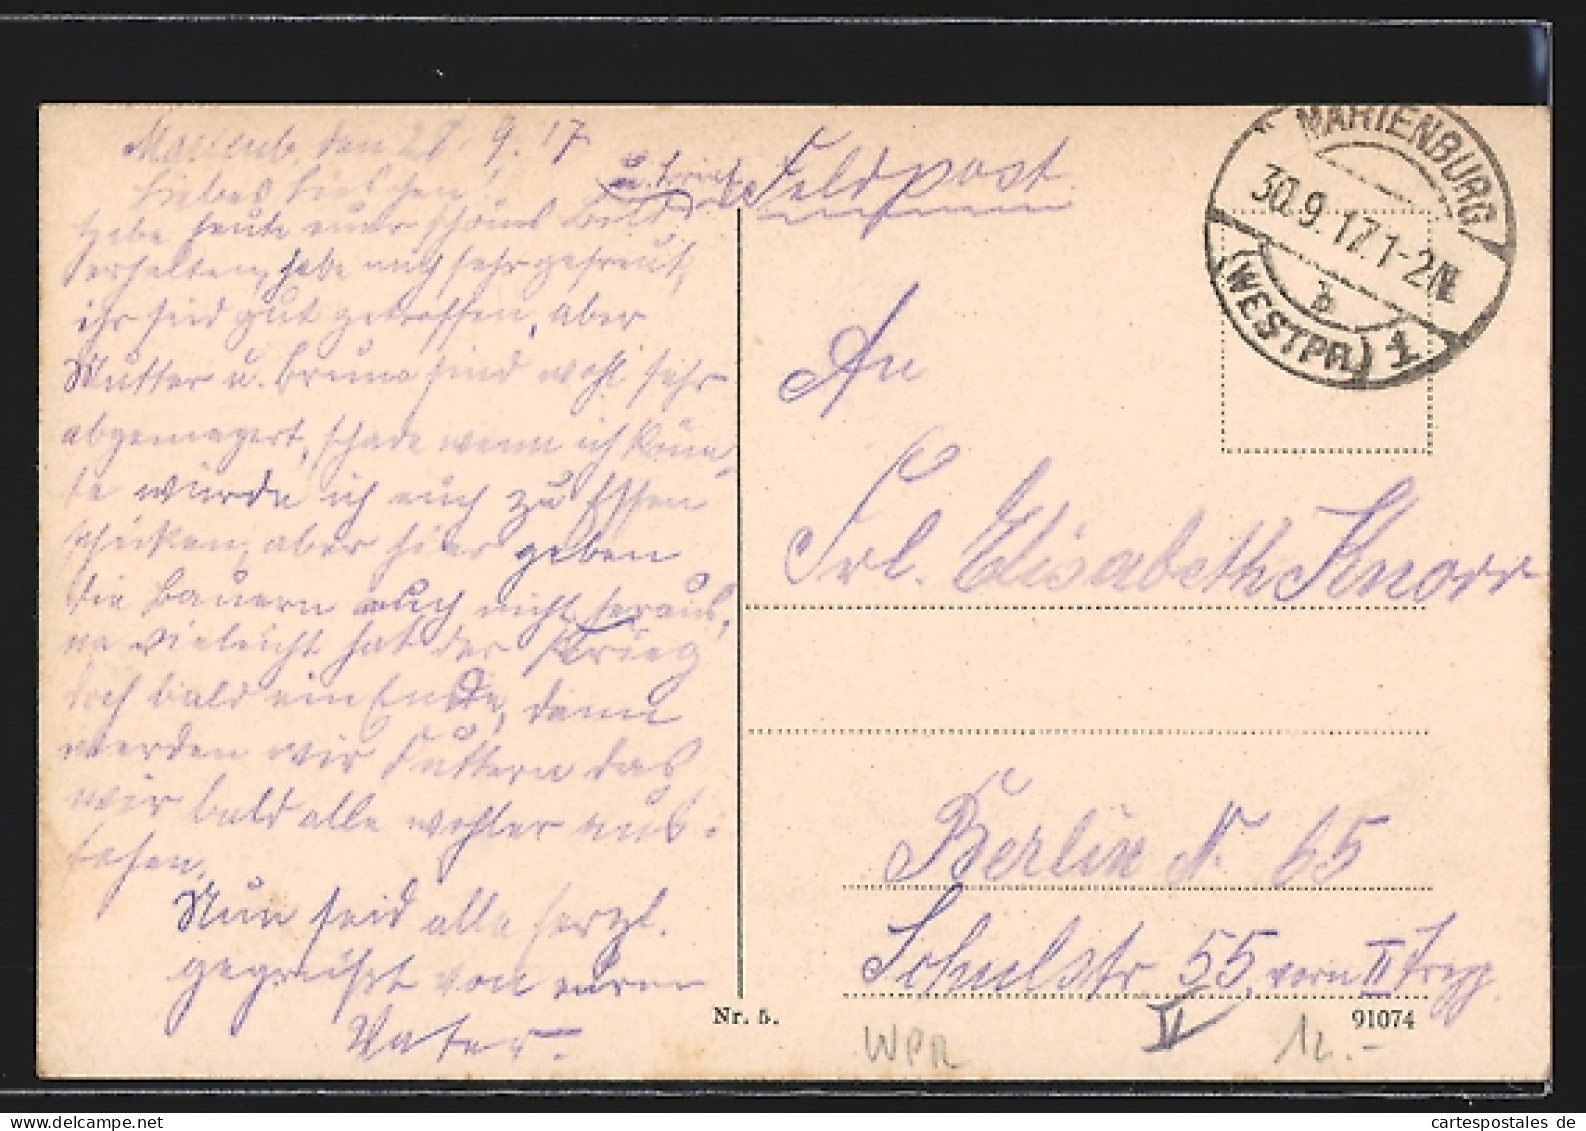 Marienb. den 28. 9. 17
Liebes Lieschen!
habe heute euer schönes Bild
u. Brief
erhalten, habe mich sehr gefreut,
ihr seid gut getroffen, aber
Mutter u. Bruno sind wohl sehr
abgemagert, schade wenn ich könn-
te würde ich euch zu Essen
schicken, aber hier geben
die Bauern auch nicht heraus,
na vieleicht hat der Krieg
doch bald ein Ende, dann
werden wir futtern das
wir bald alle wohler aus-
sehen.
Nun seid alle herzl.
gegrüßt von euren
Vater.
Feldpost
MARIENBURG
30.9.17.1-2N.
b
(WESTPR.) 1
An
Frl. Elisabeth Knorr
Berlin N. 65
Schulstr 55, vorn II
II
Nr. 5.
91074
WPR
12.-
cartespostales de